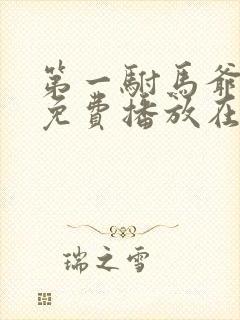 第一駙馬爺
免費播放在
瑞之雪